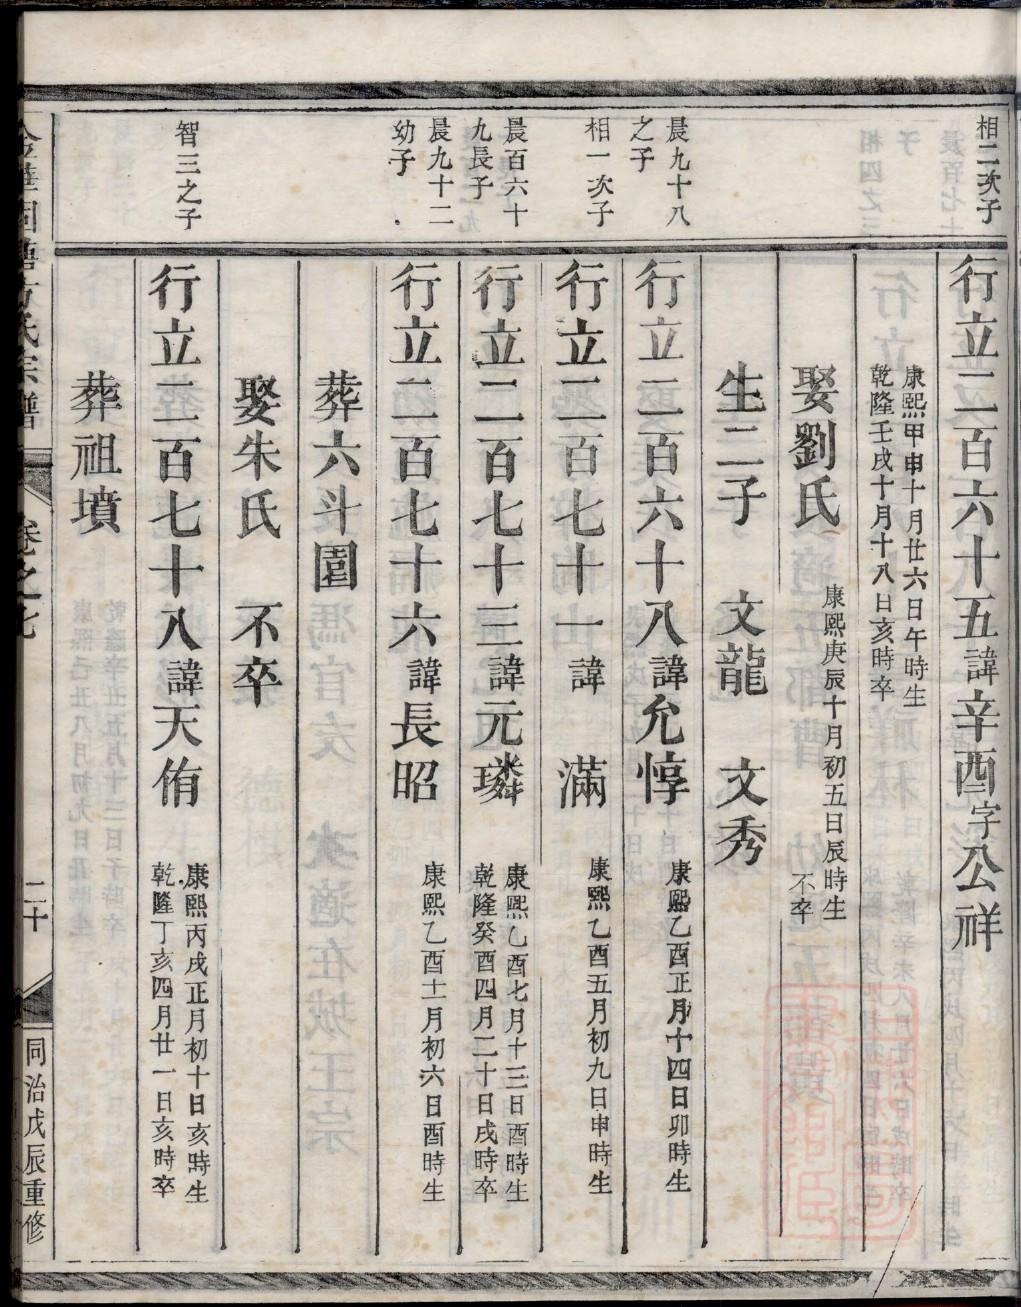 相二次子
行立二百六十五諱辛酉字公祥
康熙甲申十月廿六日午時生
乾隆壬戌十月十八日亥時卒
娶劉氏
康熙庚辰十月初五日辰時生
不卒
生二子 文龍 文秀
晨九十八
之子
行立二百六十八諱允惇
康熙乙酉正月十四日卯時生
相一次子
行立二百七十一諱 滿
康熙乙酉五月初九日申時生
晨百六十
九長子
行立二百七十三諱元璘
康熙乙酉七月十三日酉時生
乾隆癸酉四月二十日戌時卒
晨九十二
幼子
行立二百七十六諱長昭
康熙乙酉十一月初六日酉時生
葬六斗園
娶朱氏 不卒
智三之子
行立二百七十八諱天侑
康熙丙戌正月初十日亥時生
乾隆丁亥四月廿一日亥時卒
葬祖墳
氏宗譜
卷之七
二十
同治戊辰重修